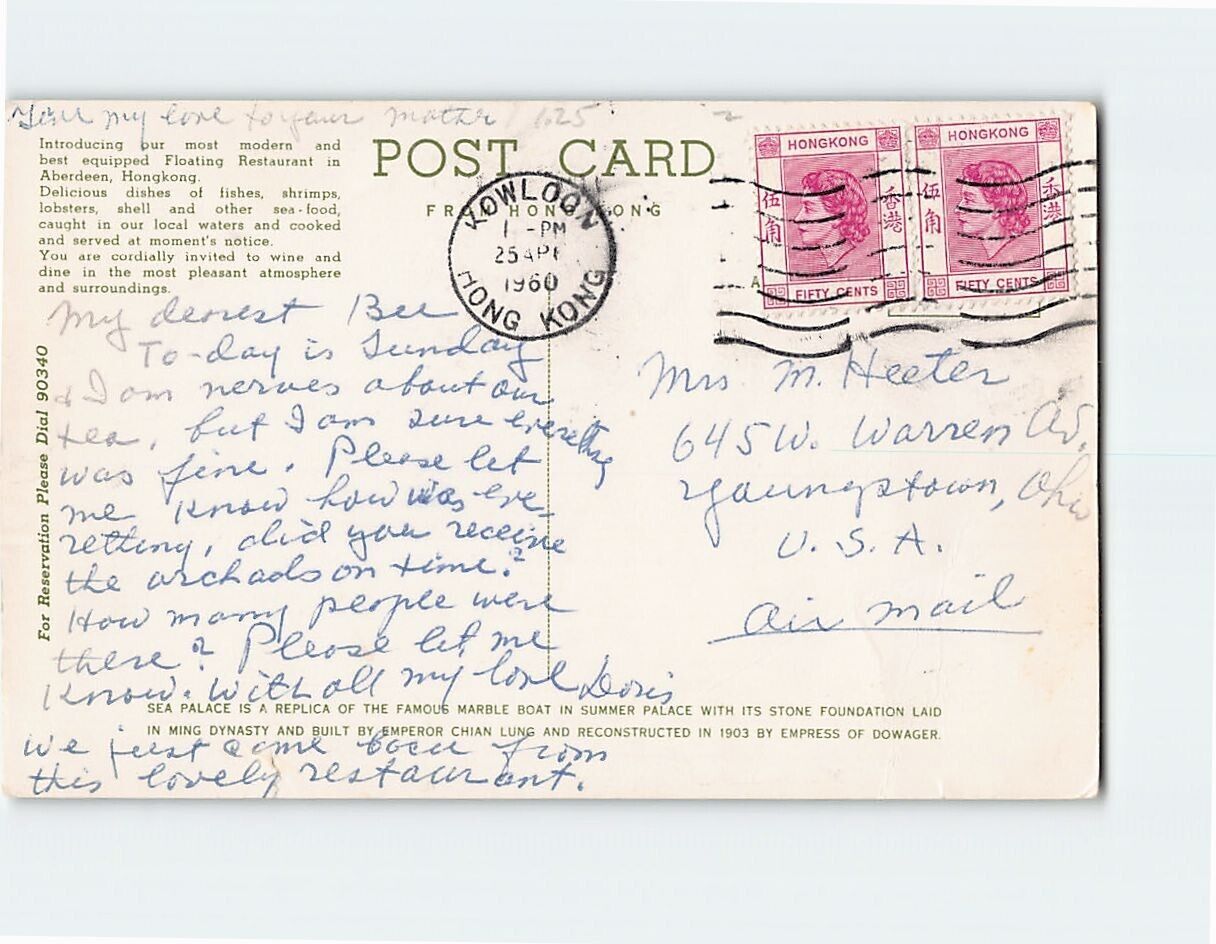 my love to your mother 1.25
Introducing our most modern and
best equipped Floating Restaurant in
Aberdeen, Hongkong.
Delicious dishes of fishes, shrimps,
lobsters, shell and other sea-food,
caught in our local waters and cooked
and served at moment's notice.
You are cordially invited to wine and
dine in the most pleasant atmosphere
and surroundings.
For Reservation Please Dial 90340
POST CARD
FROM HONG KONG
KOWLOON
1 -PM
25 AP
1960
HONG KONG
HONGKONG
伍角
香港
FIFTY CENTS
HONGKONG
伍角
香港
FIFTY CENTS
A
My dearest Bee
To-day is Sunday
& I am nerves about our
tea, but I am sure everething
was fine. Please let
me know how was eve-
rething, did you receive
the orchads on time?
How many people were
there? Please let me
know. With all my love Doris
We just came back from
this lovely restaurant.
Mrs M. Heeter
645 W. Warren Av.
Youngstown, Ohio
U. S. A.
Air mail
SEA PALACE IS A REPLICA OF THE FAMOUS MARBLE BOAT IN SUMMER PALACE WITH ITS STONE FOUNDATION LAID
IN MING DYNASTY AND BUILT BY EMPEROR CHIAN LUNG AND RECONSTRUCTED IN 1903 BY EMPRESS OF DOWAGER.